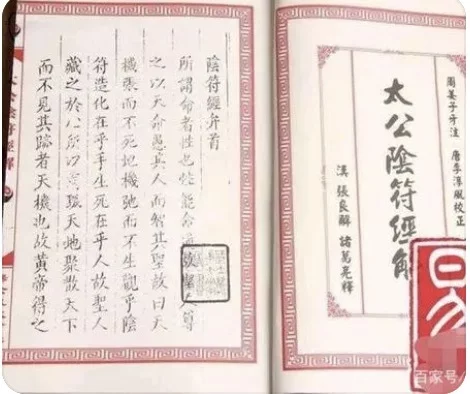 周姜子牙注 唐李淳風校正
太公陰符經解
漢張良解 諸葛亮釋
陰符經弁首
所謂命者性也性能命故聖人尊
之以天命愚其人而智其聖故曰天
機張而不死地機弛而不生觀乎陰
符造化在乎手生死在乎人故聖人
藏之於心所以甄天地聚散天下
而不見其跡者天機也故黃帝得之
易
百家号/